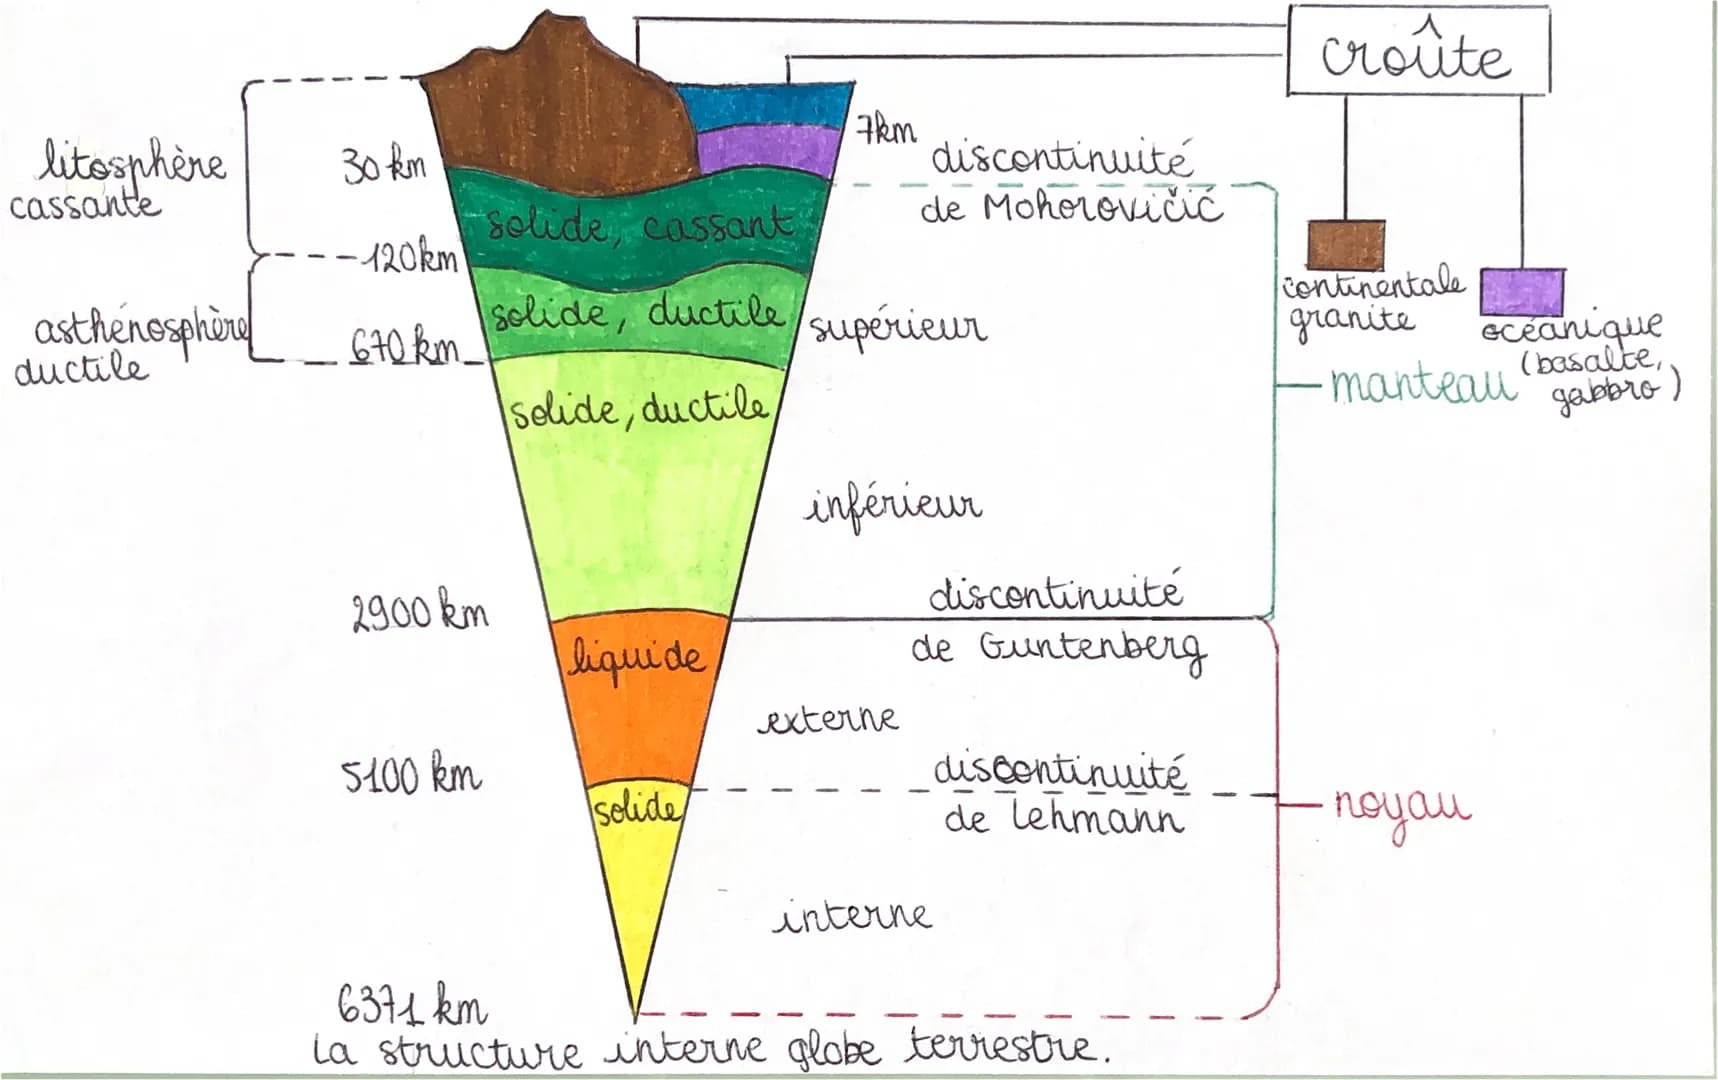 croûte
7km
discontinuité
de Mohorovičić
litosphère
cassante
30 km
solide, cassant
120km
continentale
granite
océanique
(basalte,
gabbro)
asthénosphère
ductile
solide, ductile
670 km
supérieur
manteau
solide, ductile
inférieur
2900 km
discontinuité
de Guntenberg
liquide
externe
5100 km
discontinuité
de Lehmann
solide
noyau
interne
6371 km
La structure interne globe terrestre.